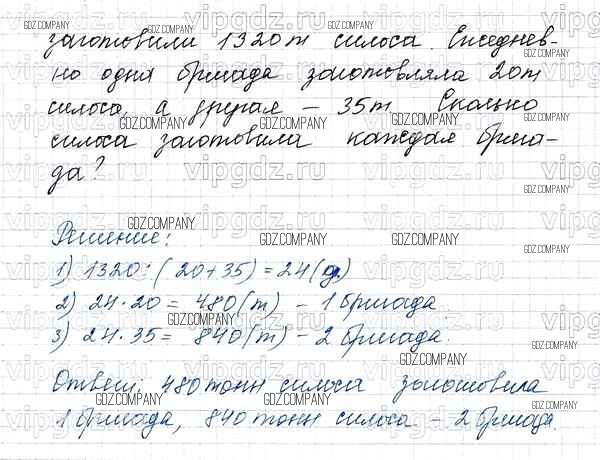 заготовили 1320т силоса. Ежеднев-
но одна бригада заготовляла 20т
силоса, а другая – 35т. Сколько
силоса заготовила каждая брига-
да?
Решение:
1) 1320:(20+35)=24(д.)
2) 24·20= 480(т) – 1 бригада.
3) 24·35= 840(т) – 2 бригада.
Ответ: 480 тонн силоса заготовила
1 бригада, 840 тонн силоса – 2 бригада.